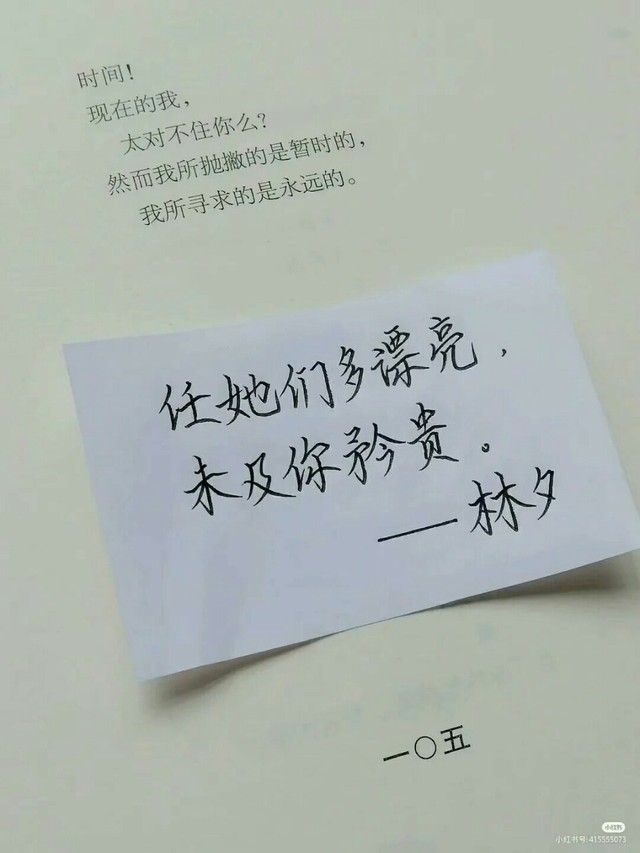 时间！
现在的我，
太对不住你么？
然而我所抛撇的是暂时的，
我所寻求的是永远的。
任她们多漂亮，
未及你矜贵。
——林夕
一〇五
小红书
小红书号: 415555073